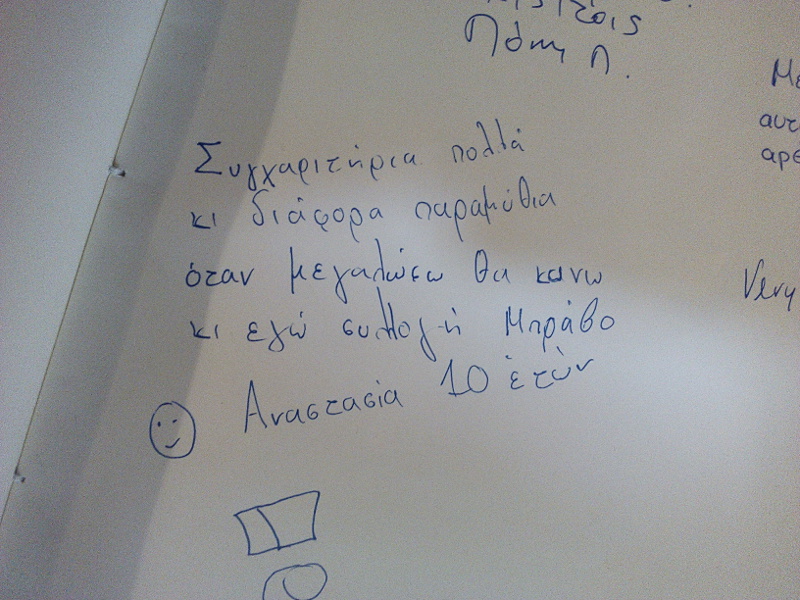 Πόπη Π.
Συγχαριτήρια πολλά
κι διάφορα παραμύθια
όταν μεγαλώσω θα κανω
κι εγώ συλλογή Μπράβο
Αναστασία 10 ἐτών
Με
αυτ
αρε
Very